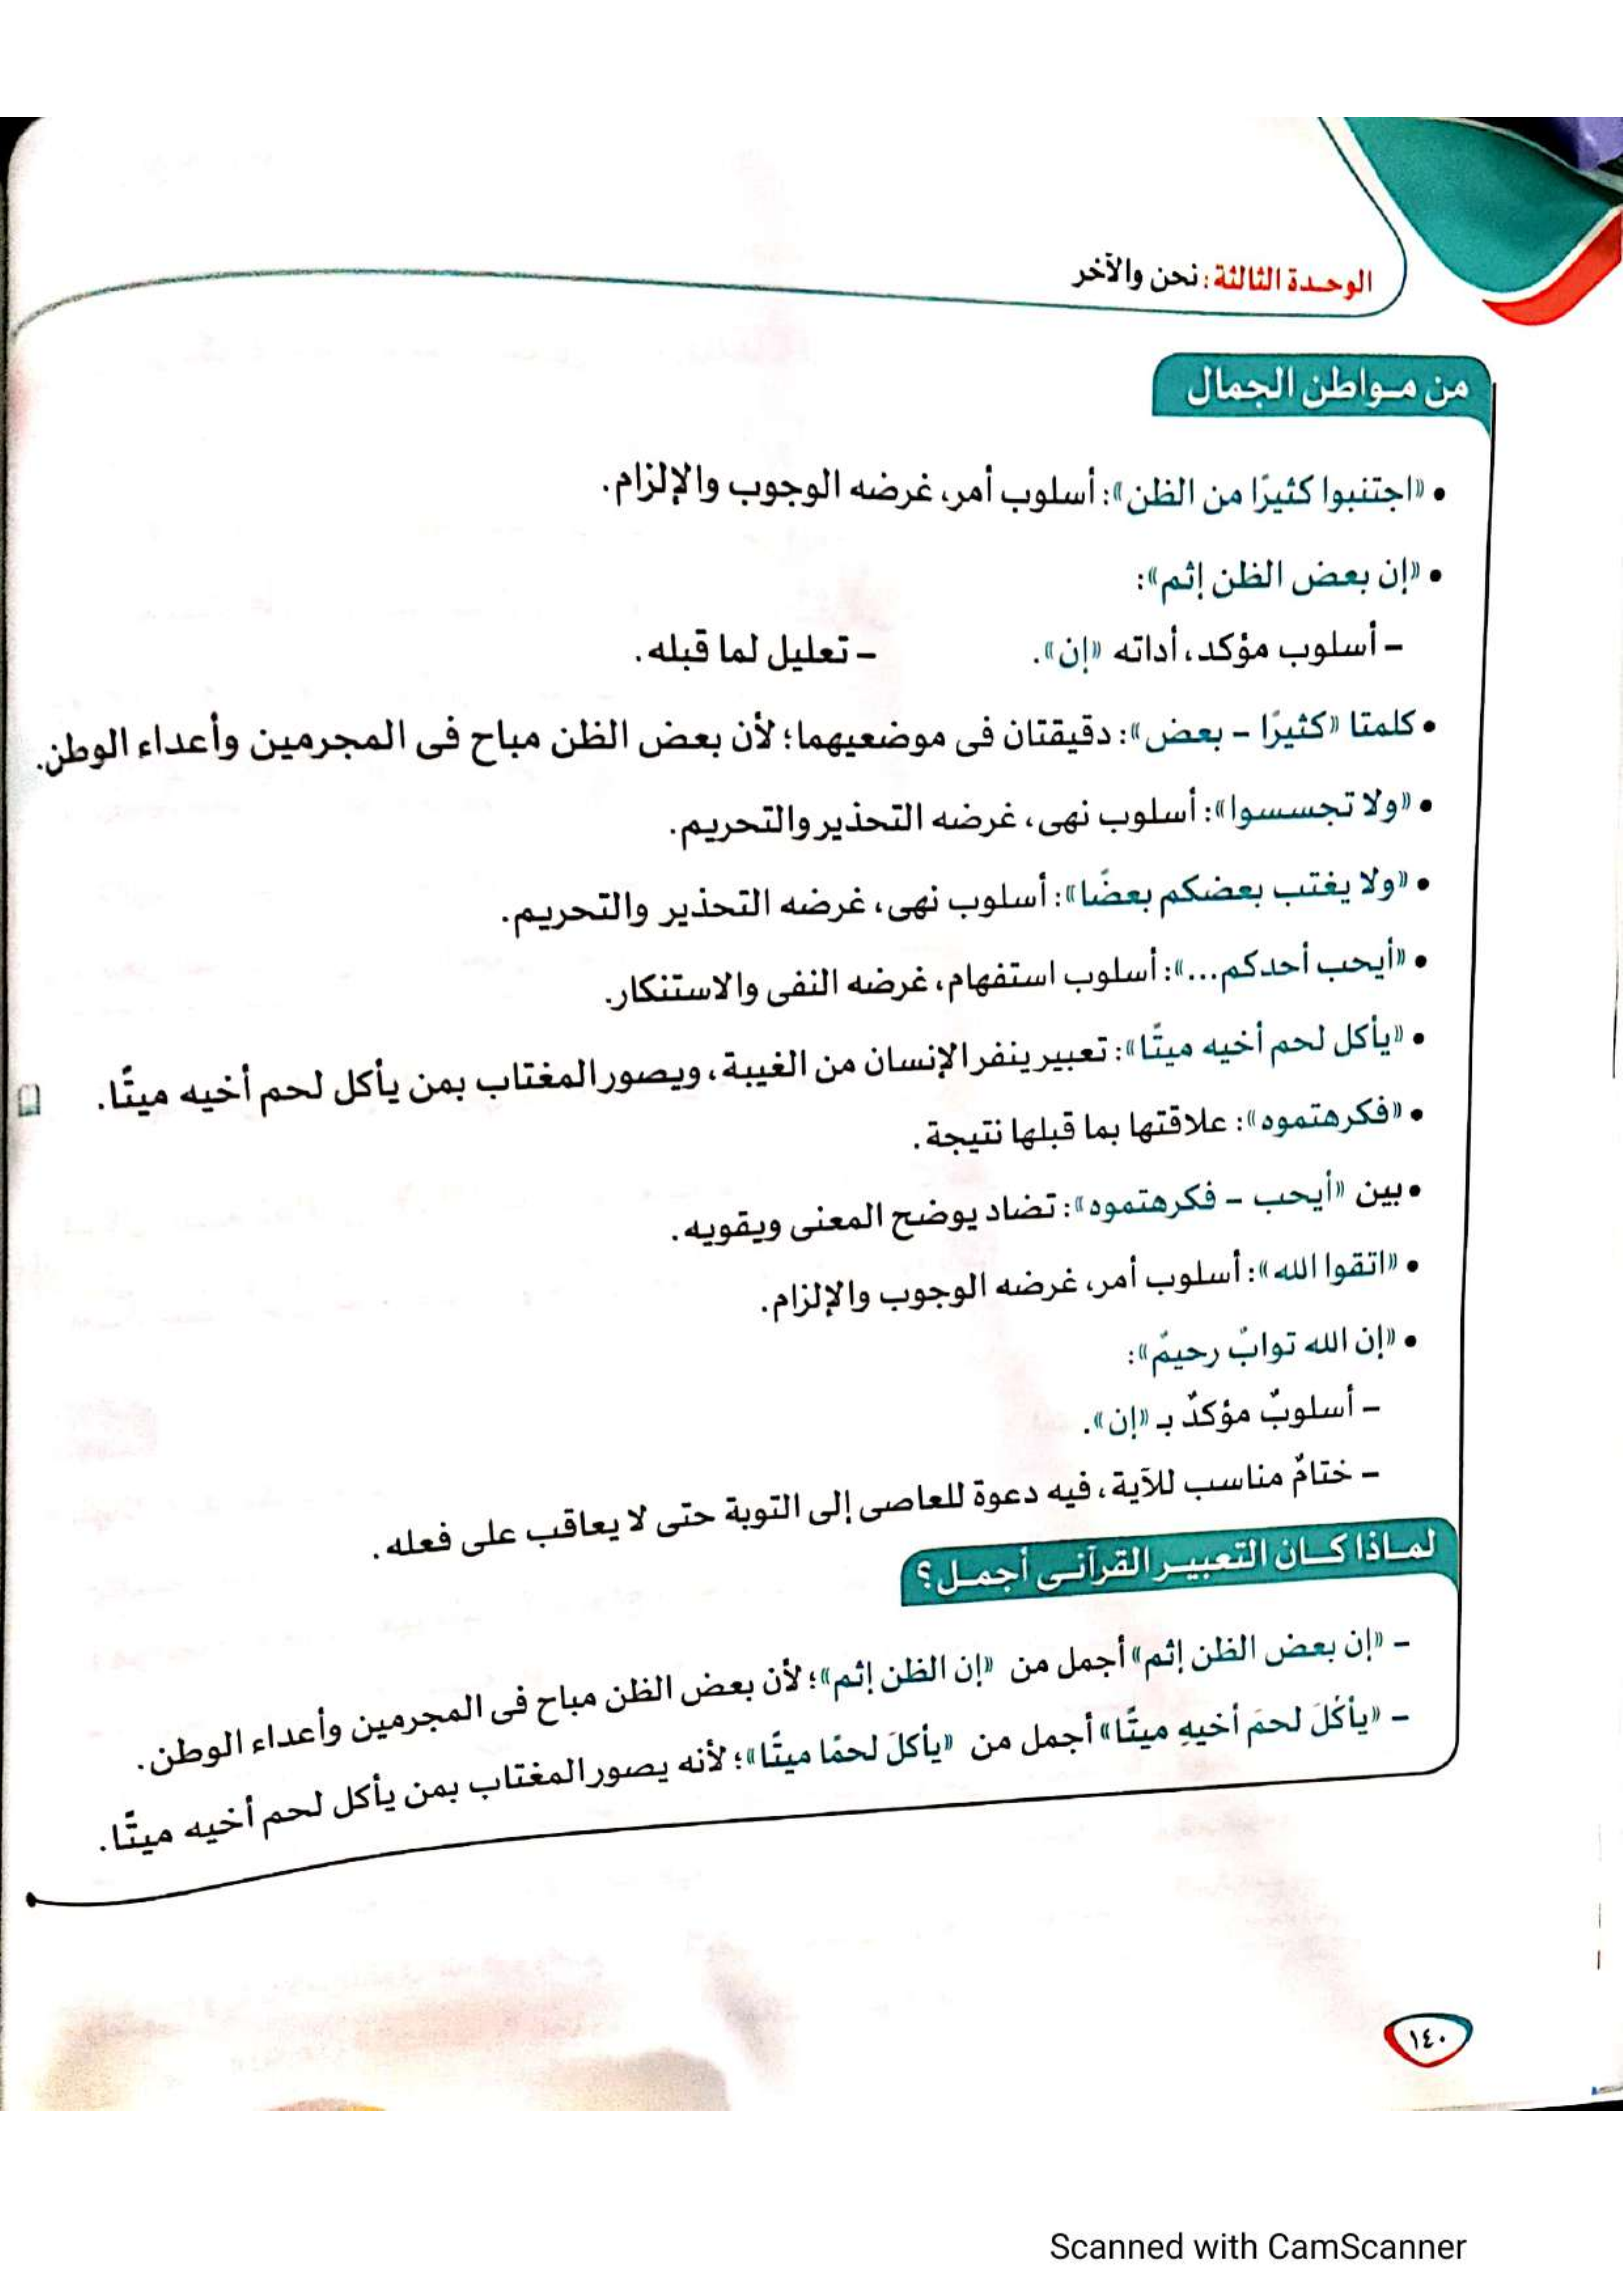 الوحدة الثالثة: نحن والآخر
من مواطن الجمال
• «اجتنبوا كثيرًا من الظن»: أسلوب أمر، غرضه الوجوب والإلزام.
• «إن بعض الظن إثم»:
– أسلوب مؤكد، أداته «إن». – تعليل لما قبله.
• كلمتا «كثيرًا – بعض»: دقيقتان فى موضعيهما؛ لأن بعض الظن مباح فى المجرمين وأعداء الوطن.
• «ولا تجسسوا»: أسلوب نهى، غرضه التحذير والتحريم.
• «ولا يغتب بعضكم بعضًا»: أسلوب نهى، غرضه التحذير والتحريم.
• «أيحب أحدكم...»: أسلوب استفهام، غرضه النفى والاستنكار.
• «يأكل لحم أخيه ميتًا»: تعبير ينفر الإنسان من الغيبة، ويصور المغتاب بمن يأكل لحم أخيه ميتًا.
• «فكرهتموه»: علاقتها بما قبلها نتيجة.
• بين «أيحب – فكرهتموه»: تضاد يوضح المعنى ويقويه.
• «اتقوا الله»: أسلوب أمر، غرضه الوجوب والإلزام.
• «إن الله توابٌ رحيمٌ»:
– أسلوبٌ مؤكدٌ بـ «إن».
– ختامٌ مناسب للآية، فيه دعوة للعاصى إلى التوبة حتى لا يعاقب على فعله.
لماذا كان التعبير القرآنى أجمل؟
– «إن بعض الظن إثم» أجمل من «إن الظن إثم»؛ لأن بعض الظن مباح فى المجرمين وأعداء الوطن.
– «يأكُلَ لحمَ أخيهِ ميتًا» أجمل من «يأكلَ لحمًا ميتًا»؛ لأنه يصور المغتاب بمن يأكل لحم أخيه ميتًا.
١٤٠
Scanned with CamScanner